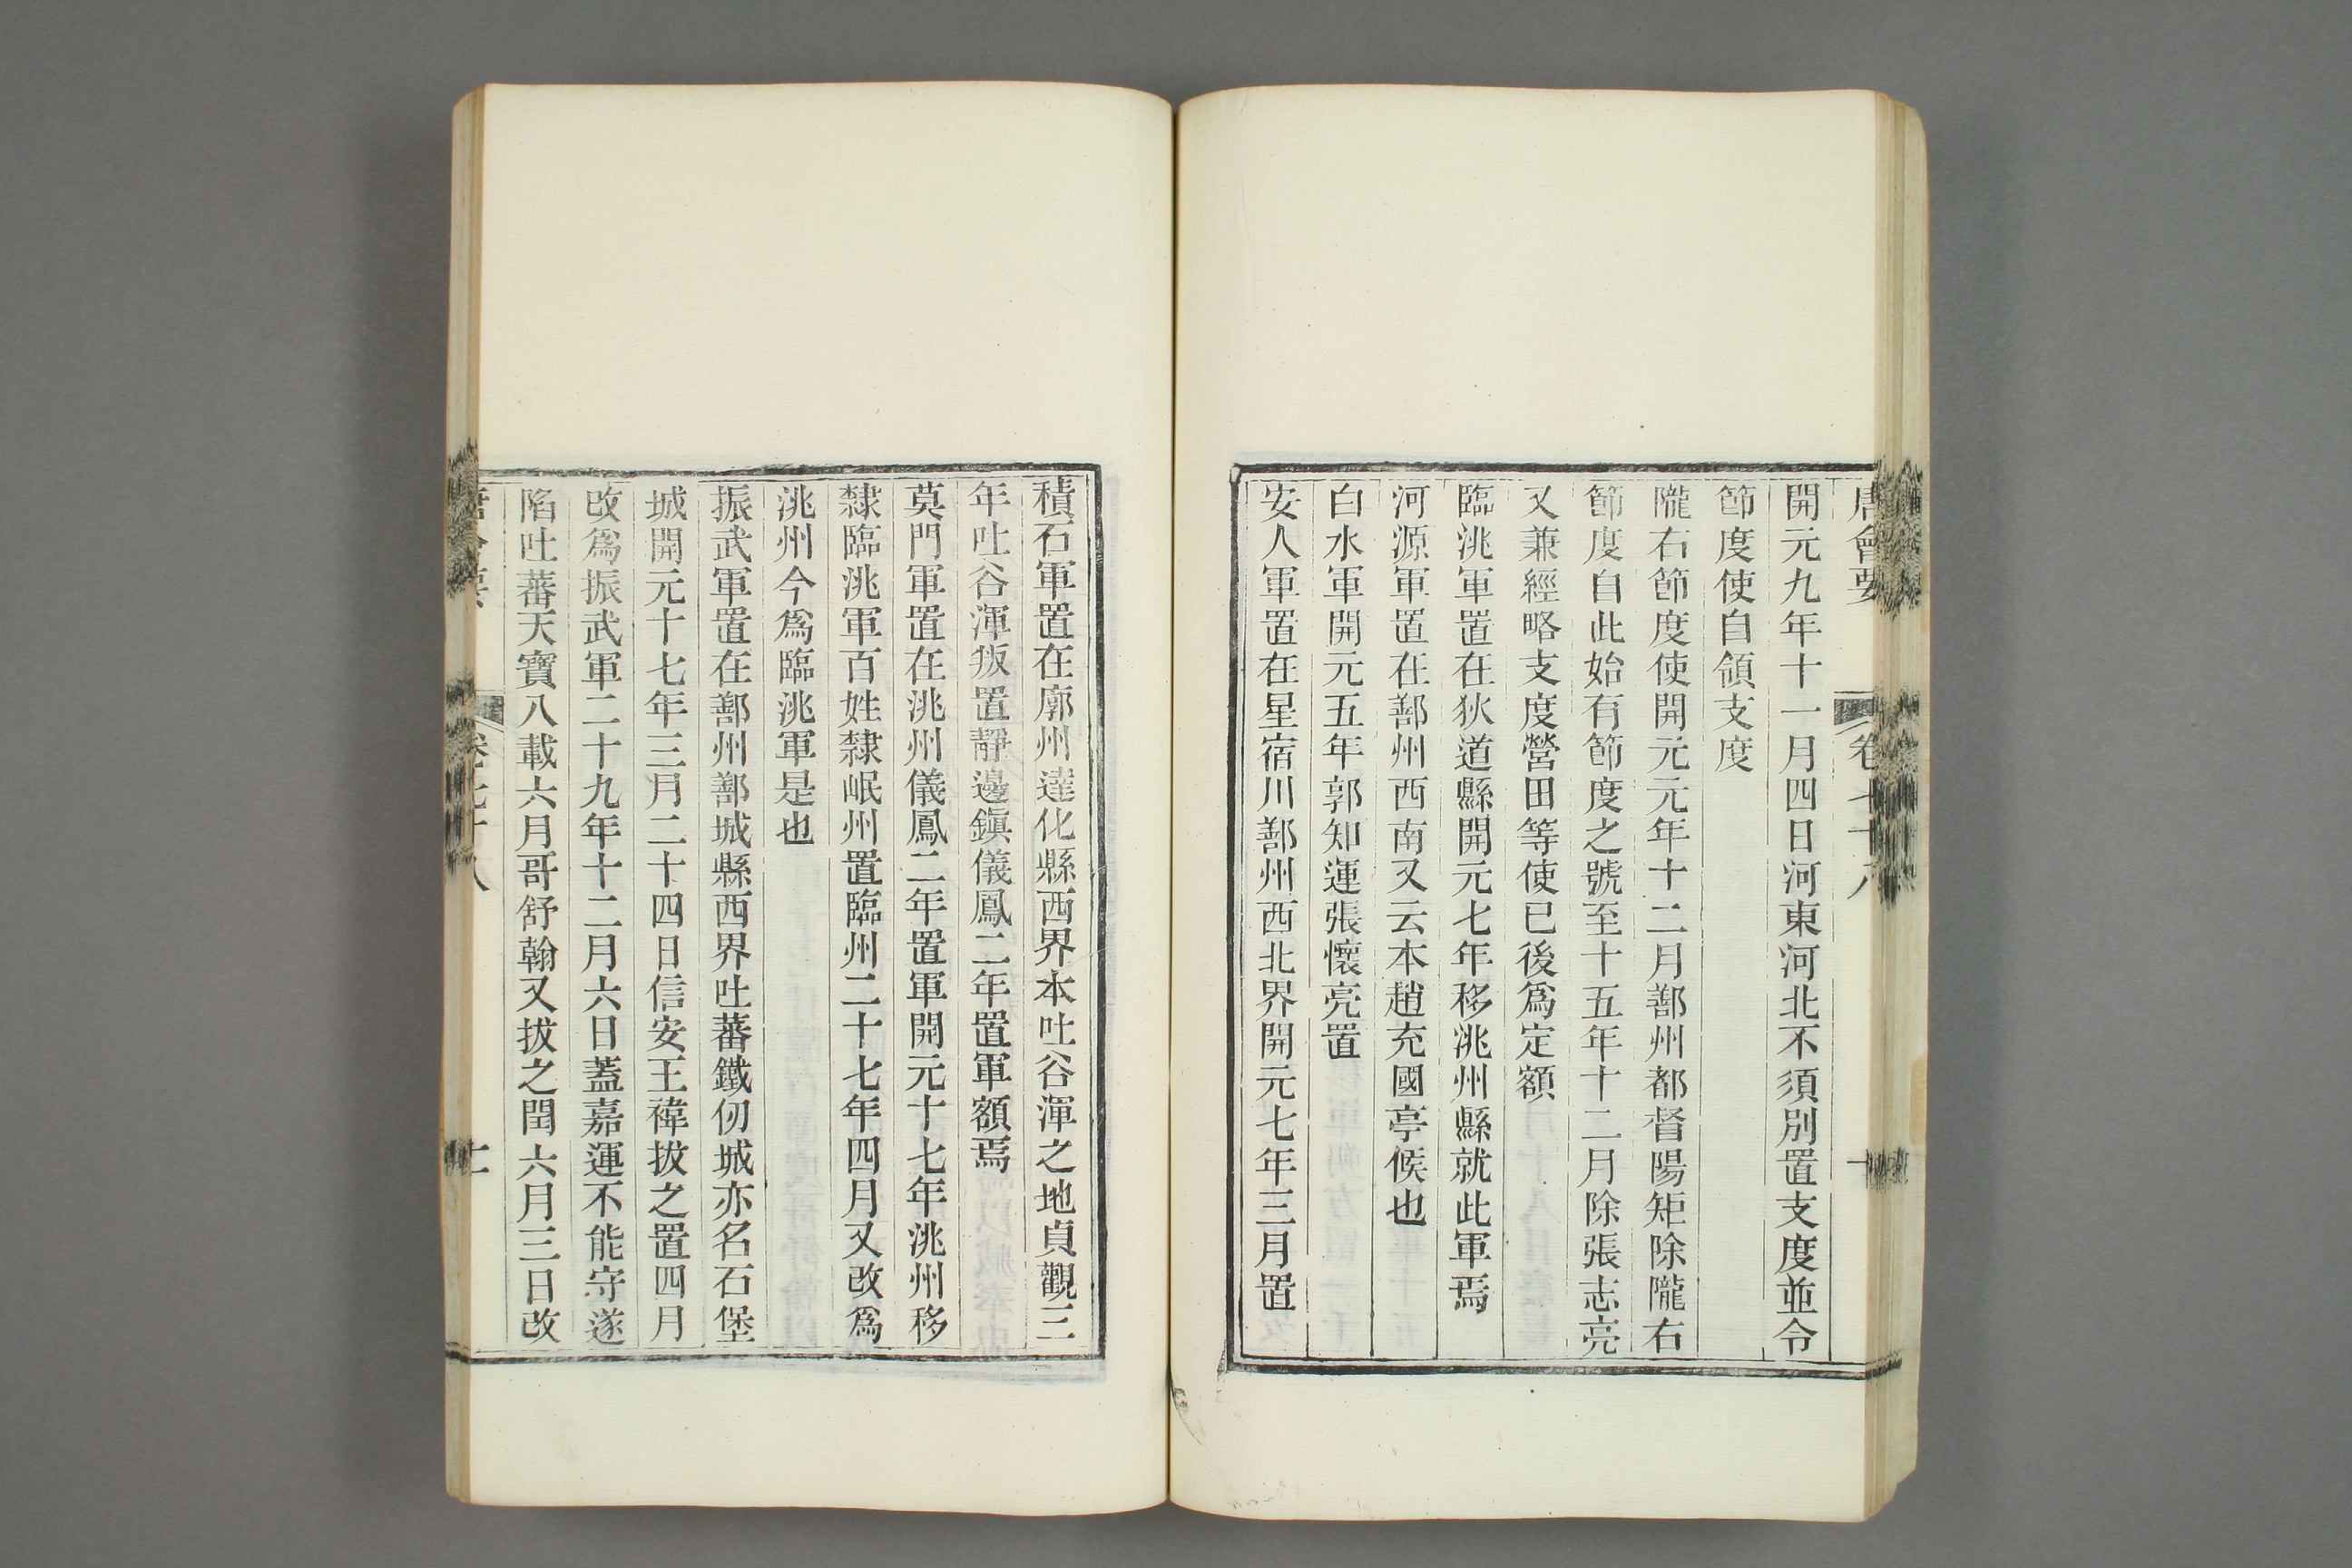 唐會要 卷七十八 十
開元九年十一月四日河東河北不須別置支度並令
節度使自領支度
隴右節度使開元元年十二月鄯州都督陽矩除隴右
節度自此始有節度之號至十五年十二月除張志亮
又兼經略支度營田等使已後爲定額
臨洮軍置在狄道縣開元七年移洮州縣就此軍焉
河源軍置在鄯州西南又云本趙充國亭候也
白水軍開元五年郭知運張懷亮置
安人軍置在星宿川鄯州西北界開元七年三月置
積石軍置在廓州達化縣西界本吐谷渾之地貞觀三
年吐谷渾叛置靜邊鎭儀鳳二年置軍額焉
莫門軍置在洮州儀鳳二年置軍開元十七年洮州移
隸臨洮軍百姓隸岷州置臨州二十七年四月又改爲
洮州今爲臨洮軍是也
振武軍置在鄯州鄯城縣西界吐蕃鐵仞城亦名石堡
城開元十七年三月二十四日信安王禕拔之置四月
改爲振武軍二十九年十二月六日蓋嘉運不能守遂
陷吐蕃天寶八載六月哥舒翰又拔之閏六月三日改
卷七十八